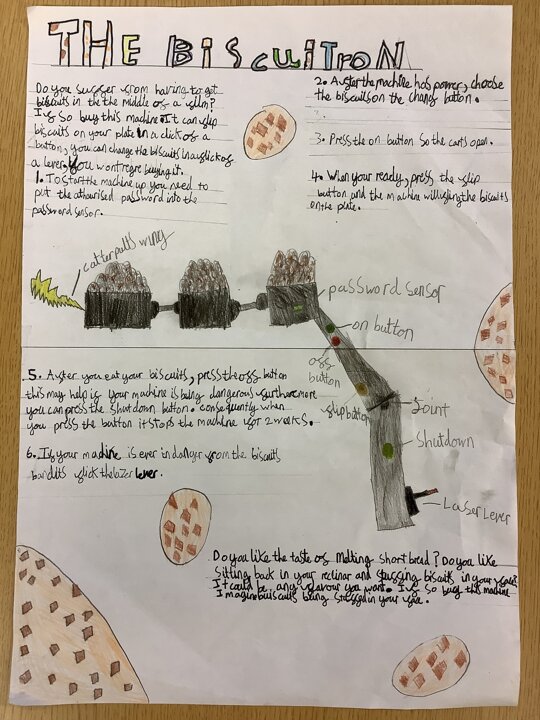 THE BiscuiTroN
Do you suffer from having to get
biscuits in the the middle of a film?
If so buy this machine. It can flip
biscuits on your plate in a click of a
button, you can change the biscuits in a flick of
a lever. You wont regre buying it.
1. To start the machine up you need to
put the athourised password into the
password sensor.
2. After the machine has power, choose
the biscuits on the change button.
3. Press the on button so the carts open.
4. When your ready, press the flip
button and the machine will fling the biscuits
on the plate.
catterpult wing
password sensor
on button
off button
flip button
Joint
Shutdown
Laser Lever
5. After you eat your biscuits, press the off button
this may help if your machine is being dangerous furthermore
you can press the shutdown button. consequently when
you press the button it stops the machine for 2 weeks.
6. If your machine is ever in danger from the biscuits
bandits flick the lazer lever.
Do you like the taste of Melting short bread? Do you like
Sitting back in your reclinar and stuffing biscuits in your
It could be any flavour you want. If so buy this machine
Imagine biscuits being stuffed in your